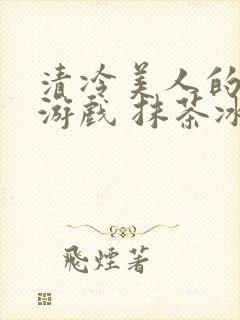 清冷美人的
游戏 抹茶冰
飛煙著